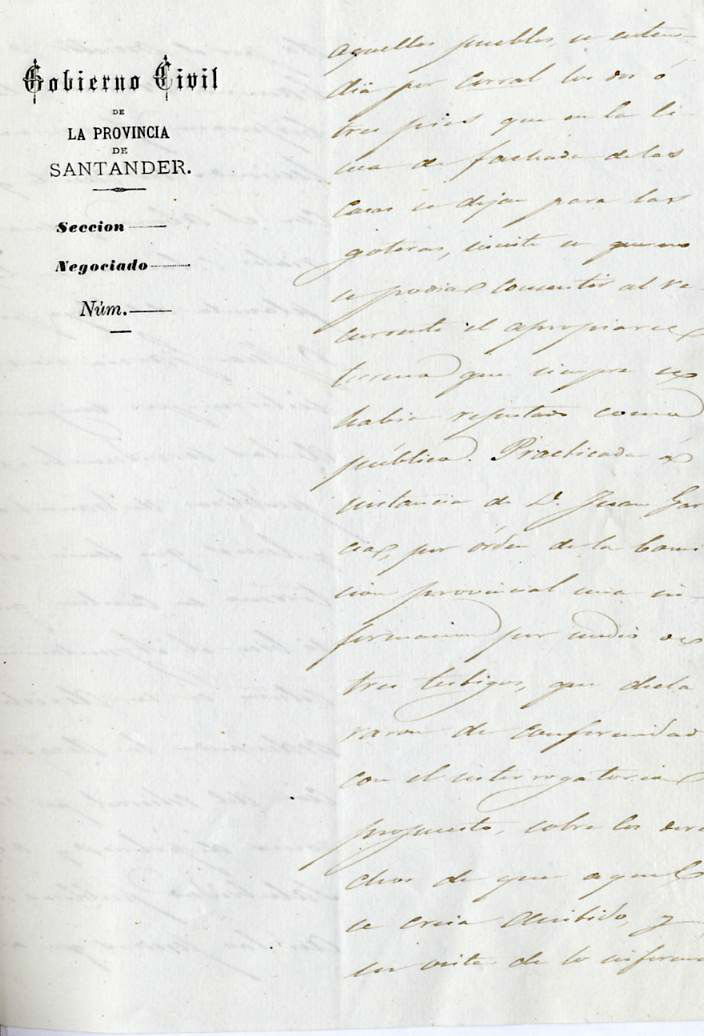 Gobierno Civil
DE
LA PROVINCIA
DE
SANTANDER.
Seccion
Negociado
Núm.
aquellos pueblos, se enten-
dia por corral los dos ó
tres pies que en la li-
nea de fachada de las
Casas se dejan para las
goteras,
se podia consentir al re-
currente el apropiarse
terreno que siempre se
habia reputado como
público. Practicada á
instancia de D. Juan Gar-
cia, por órden de la Comi-
sion provincial una in-
formacion por medio de
tres testigos, que decla
raron de conformidad
con el interrogatorio
propuesto, sobre los dere
chos de que aquel
se creia asistido, y
en vista de lo inform